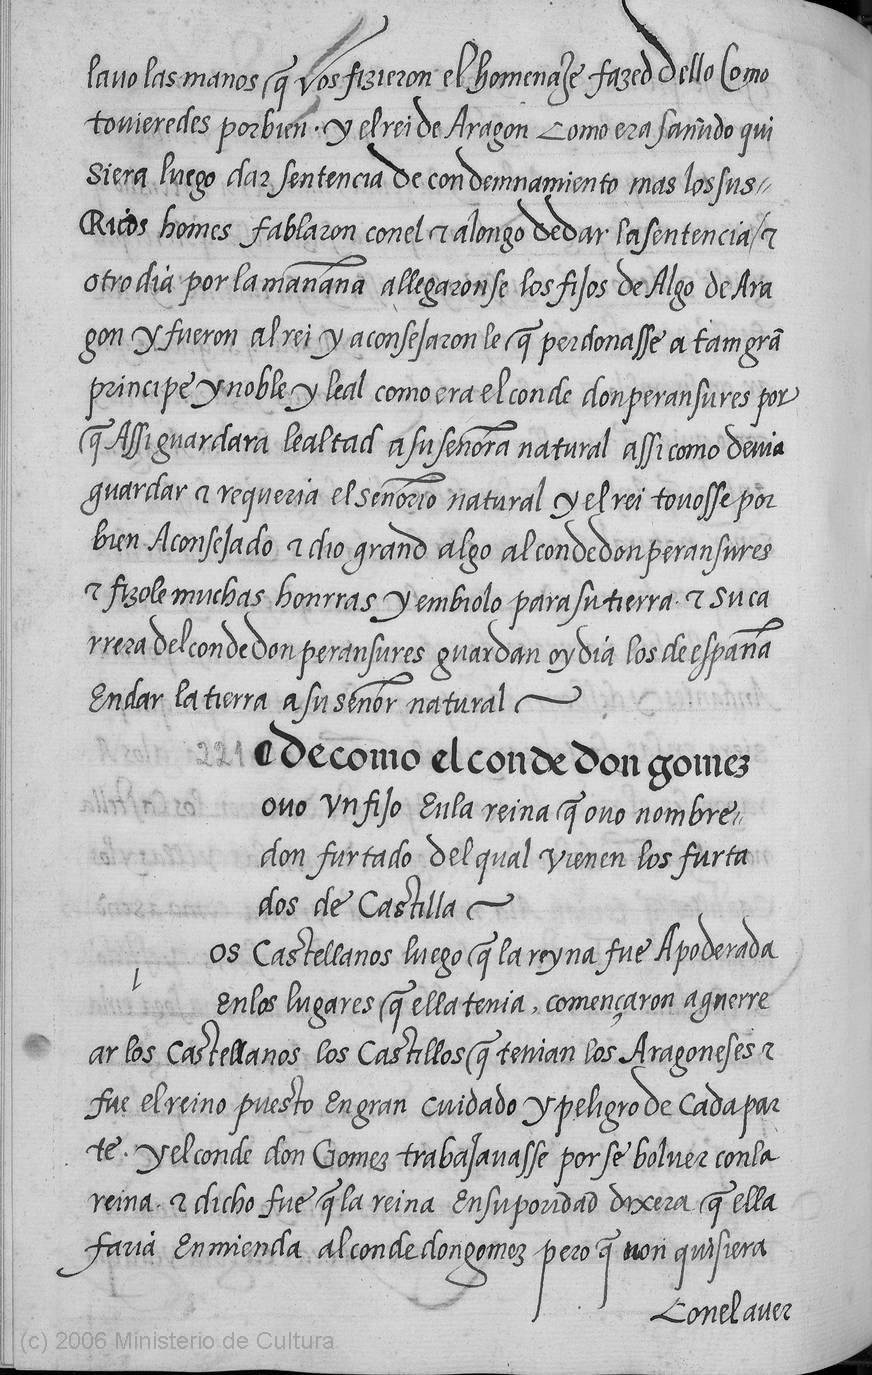 lauo las manos q̃ vos fizieron el homenaje fazed dello Como
tovieredes por bien · y el rei de Aragon Como era sañudo qui
siera luego dar sentencia de condemnamiento mas los sus
Ricos homes fablaron con el τ alongo de dar la sentencia / τ
otro dia por la mañana allegaronse los fijos de Algo de Ara
gon y fueron al rei y aconsejaron le q̃ perdonasse a tam grã
principe y noble y leal como era el conde don peransures por
q̃ Assi guardara lealtad a su señora natural assi como devia
guardar τ requeria el señorio natural y el rei tovosse por
bien Aconsejado τ dio grand algo al conde don peransures
τ fizole muchas honrras y embiolo para su tierra · τ su ca
rrera del conde don peransures guardan oy dia los de españa
En dar la tierra a su señor natural
221 de como el conde don gomez
ovo vn fijo En la reina q̃ ovo nombre
don furtado del qual vienen los furta
dos de Castilla
l os Castellanos luego q̃ la reyna fue Apoderada
En los lugares q̃ ella tenia, començaron a guerre
ar los Castellanos los Castillos q̃ tenian los Aragoneses τ
fue el reino puesto En gran cuidado y peligro de Cada par
te · y el conde don Gomez trabajavasse por se bolver con la
reina · τ dicho fue q̃ la reina En su poridad dixera q̃ ella
faria Enmienda al conde don gomez pero q̃ non quisiera
Con el aver
(c) 2006 Ministerio de Cultura